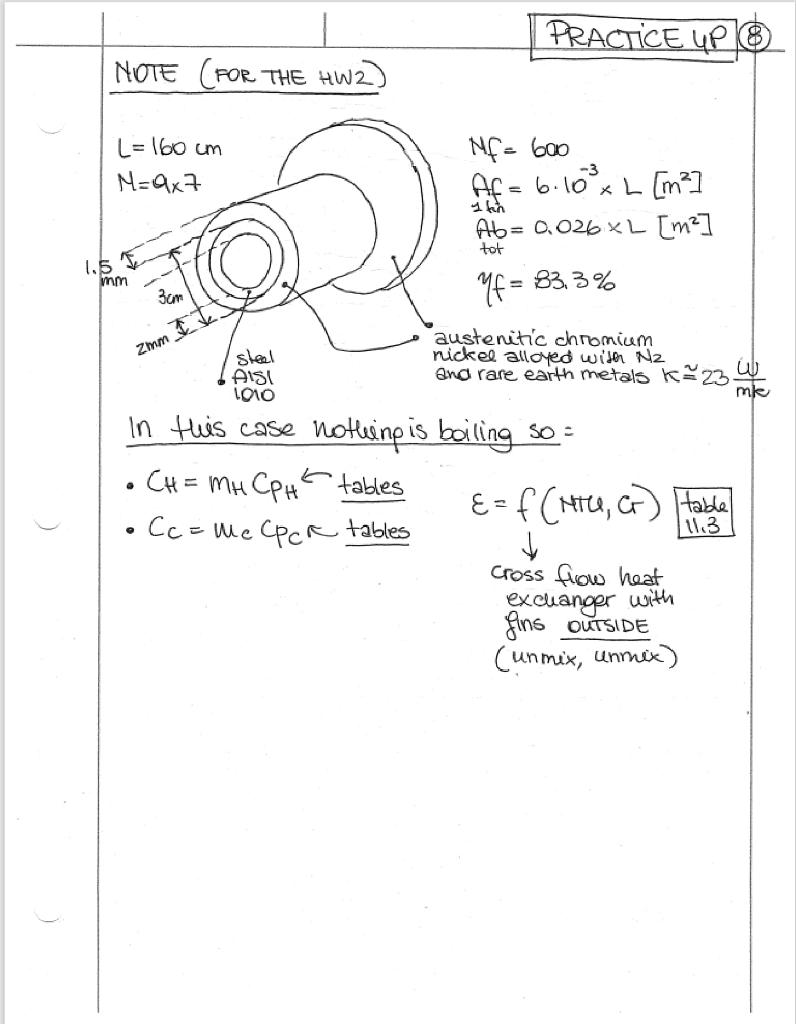 PRACTICE UP 8
NOTE (FOR THE HW2)
L= 160 cm
N=9x7
1.5 mm
3cm
2mm
steel
AISI
1010
Nf= 600
Af = 6·10⁻³ x L [m²]
1 fin
Ab= 0.026 x L [m²]
tot
ηf = 83.3%
austenitic chromium
nickel alloyed with N2
and rare earth metals K≅23 W/mk
In this case nothing is boiling so =
• CH = mH CpH ← tables
• Cc = mc Cpc ← tables
ε = f(NTU, Cr) table 11.3
↓
cross flow heat
exchanger with
fins OUTSIDE
(unmix, unmix)